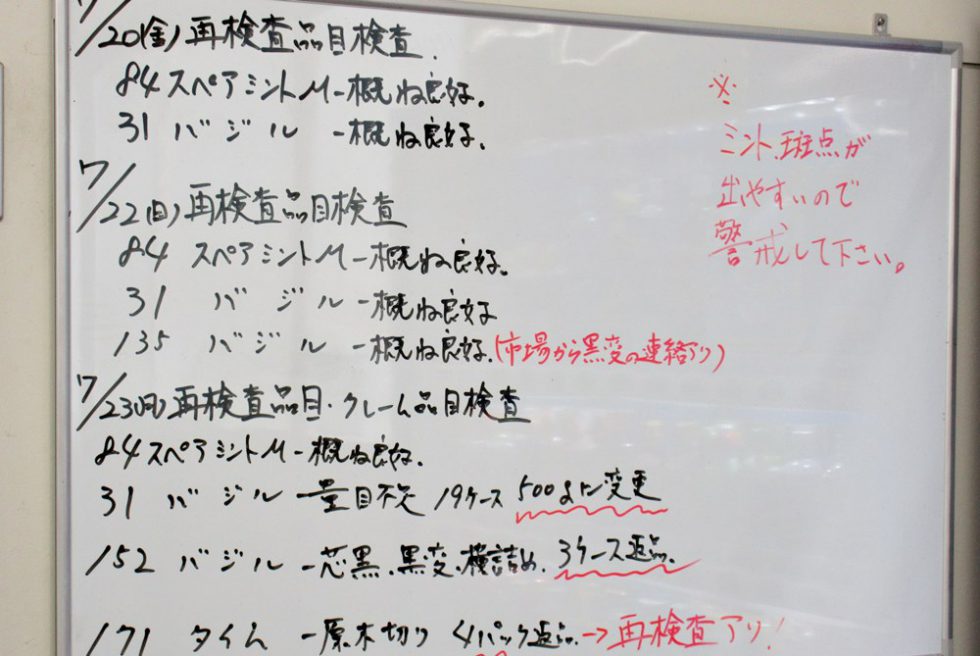 7/20(金)再検査品目検査.
84 スペアミントM-概ね良好。
31 バジル -概ね良好。
7/22(日)再検査品目検査
84 スペアミントM-概ね良好。
31 バジル -概ね良好
135 バジル -概ね良好.(市場から黒変の連絡アリ)
7/23(月)再検査品目・クレーム品目検査
84 スペアミントM-概ね良好.
31 バジル -量目不足 19ケース 500gに変更
152 バジル -芯黒.黒変.横詰め. 3ケース返品.
171 タイム -原木切り 4パック返品.→再検査アリ!
※
ミント.斑点が
出やすいので
警戒して下さい。